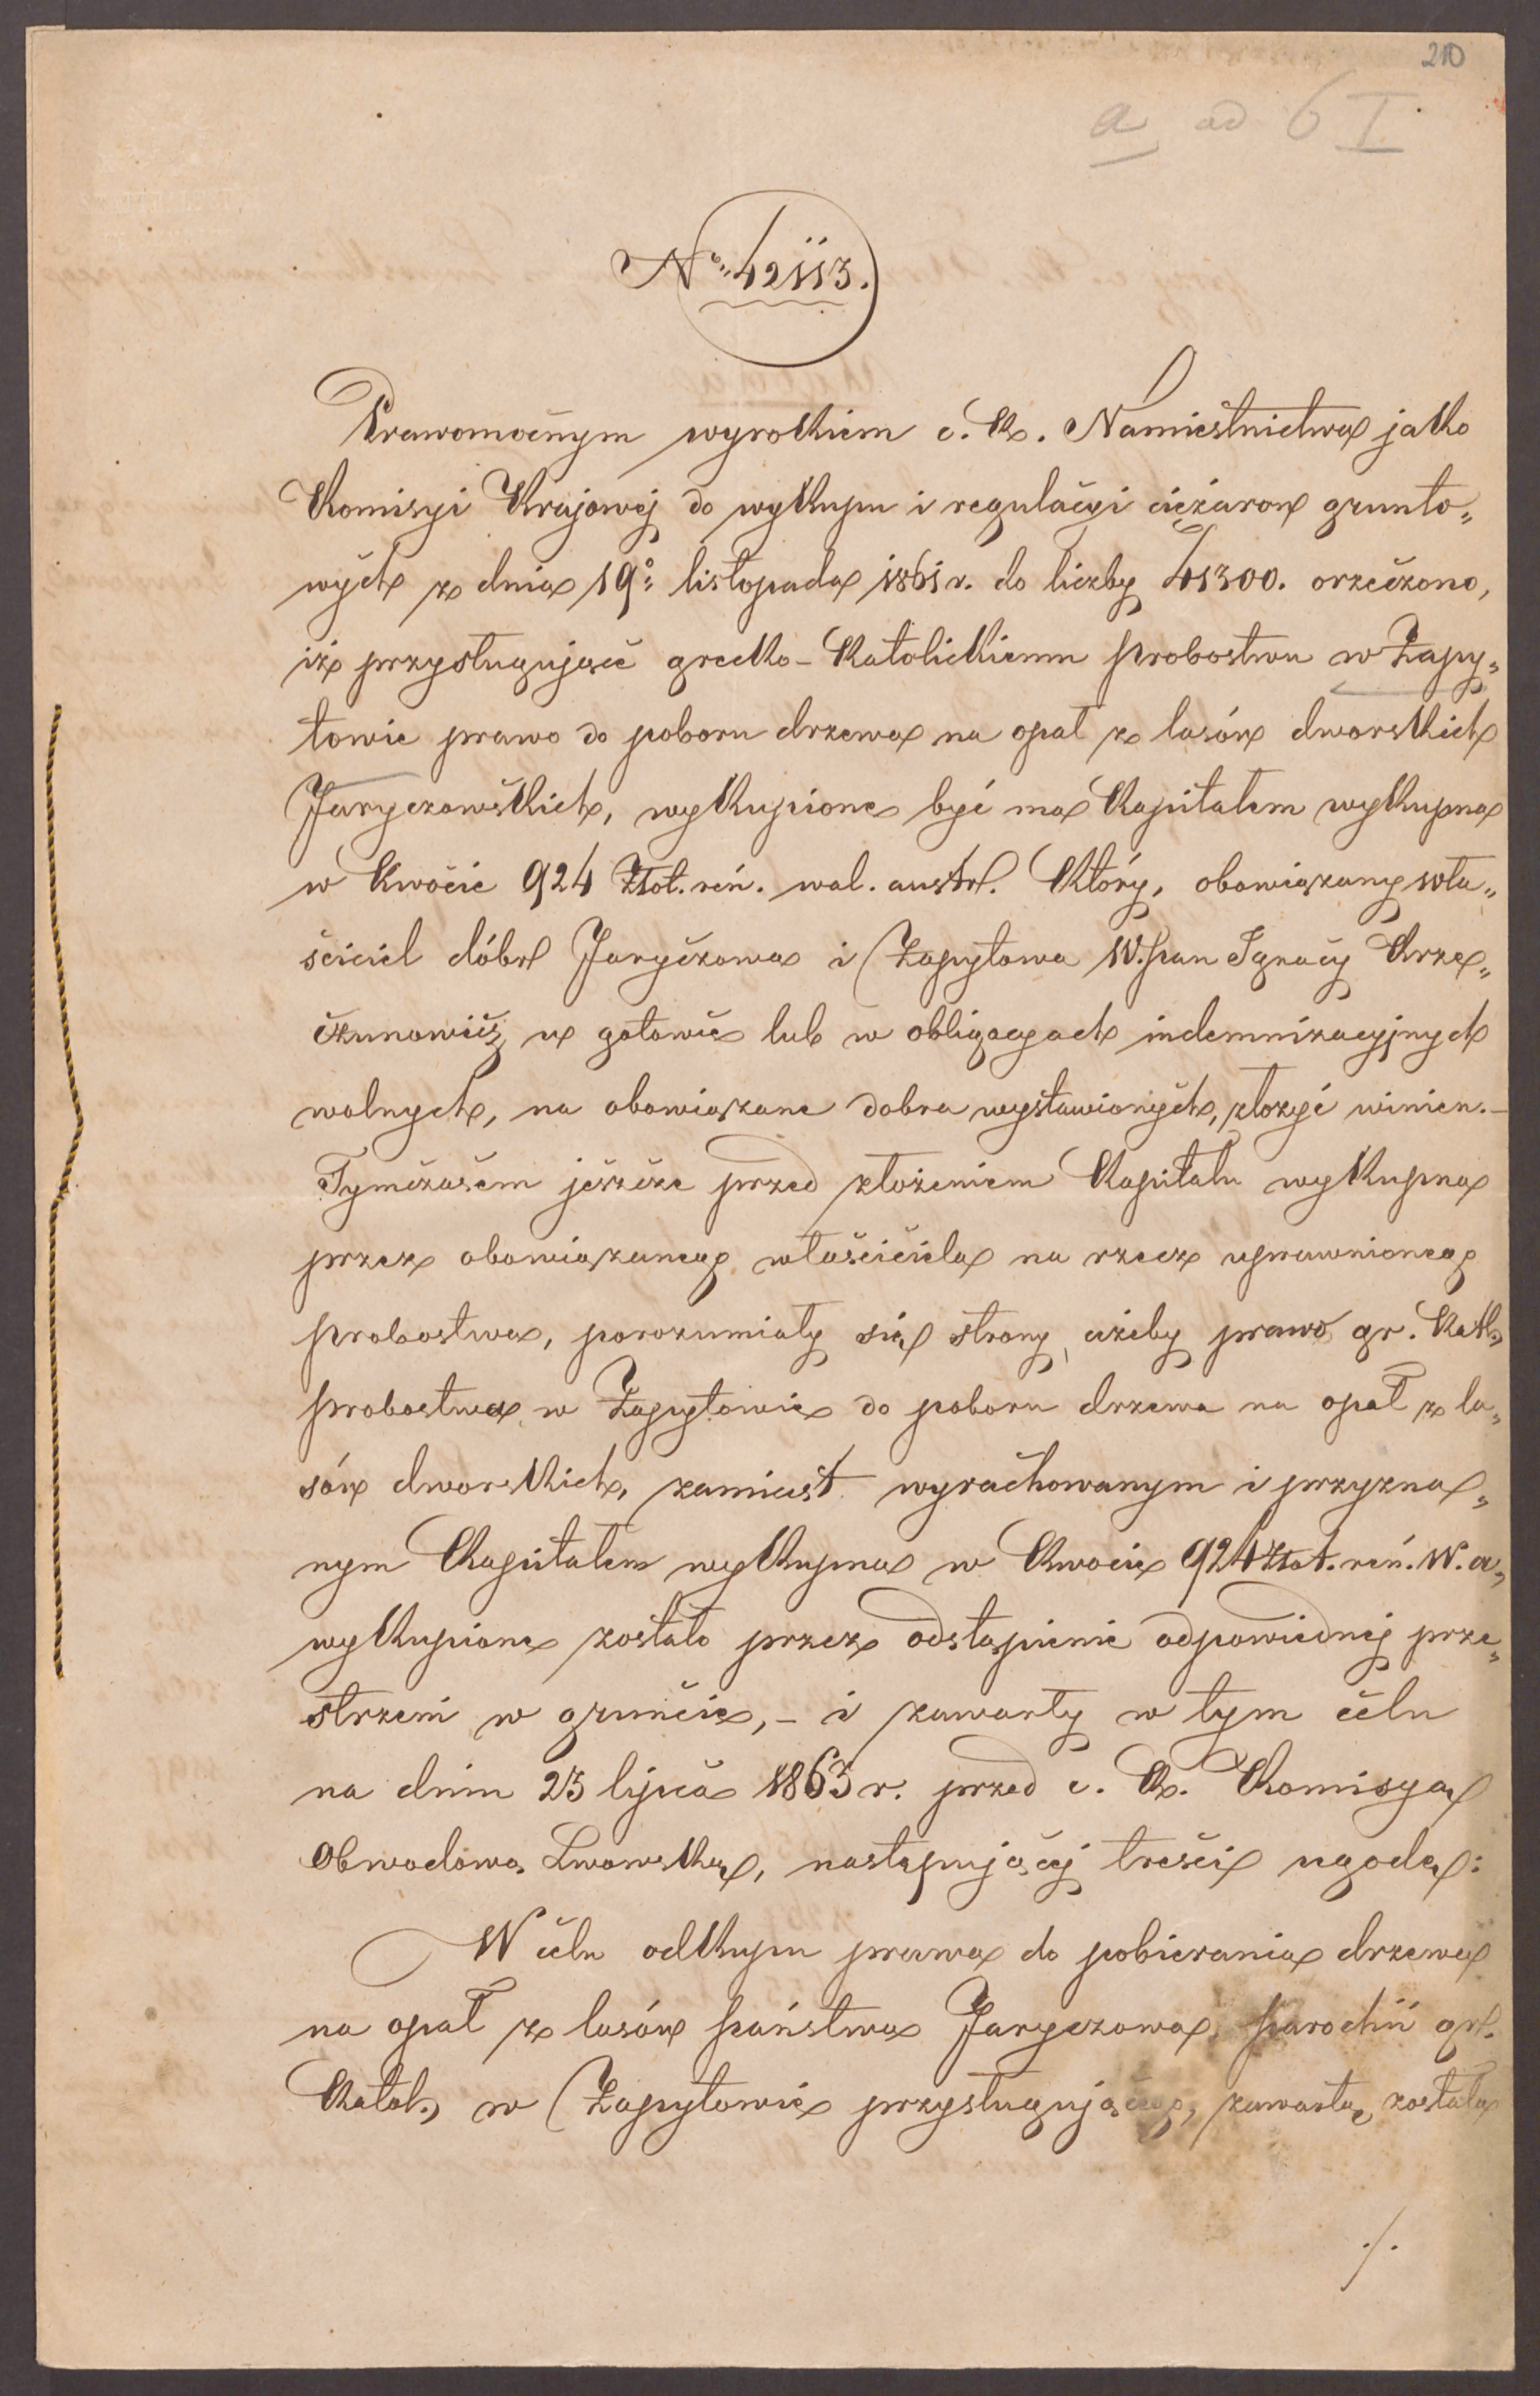 210
a ad 6 I
No. 42113.
Prawomocnym wyrokiem c. k. Namiestnictwa jako
Komisyi Krajowej do wykupu i regulacyi ciężarow grunto„
wych z dnia 19o listopada 1861 r. do liczby 41300. orzeczono,
iż przysługujące grecko-katolickiemu probostwu w Zapy„
towie prawo do poboru drzewa na opał z lasów dworskich
Jaryczowskich, wykupione być ma kapitałem wykupna
w kwocie 924 złot. reń. wal. austr. który, obowiązany wła„
ściciel dóbr Jaryczowa i Zapytowa W. pan Ignacy Krze„
czunowicz w gotowce lub w obligacyach indemnizacyjnych
wolnych, na obowiązane dobra wystawionych, złożyć winien. –
Tymczasem jeszcze przed złożeniem kapitału wykupna
przez obowiązaneg właściciela na rzecz uprawnioneg
probostwa, porozumiały się strony, ażeby prawo gr. kat.
probostwa w Zapytowie do poboru drzewa na opał z la„
sów dworskich, zamiast wyrachowanym i przyzna„
nym kapitałem wykupna w kwocie 924 złot. reń. w. a,
wykupione zostało przez odstąpienie odpowiedniej prze„
strzeni w gruncie, – i zawarły w tym celu
na dniu 23 lipca 1863 r. przed c. k. Komisyą
Obwodową Lwowską, następującej treści ugodę:
W celu odkupu prawa do pobierania drzewa
na opał z lasów państwa Jaryczowa, parochii gr.
katol. w Zapytowie przysługująceg, zawartą została
./.